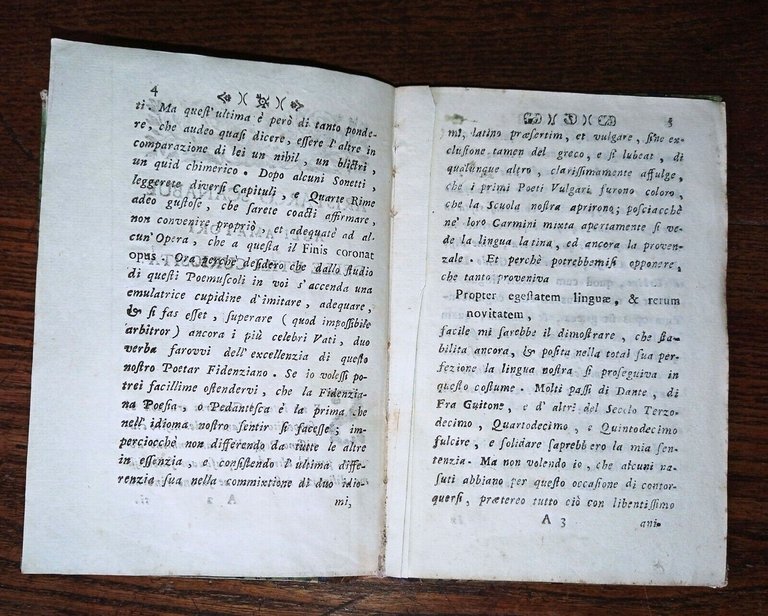 4
ti. Ma quest' ultima è però di tanto ponde-
re, che audeo quasi dicere, essere l'altre in
comparazione di lei un nihil, un blictri,
un quid chimerico. Dopo alcuni Sonetti,
leggerete diversi Capituli, e Quarte Rime
adeo gustose, che sarete coacti affirmare,
non convenire propriò, et adequatè ad al-
cun' Opera, che a questa il Finis coronat
opus. Ora perchè desidero che dallo studio
di questi Poemuscoli in voi s'accenda una
emulatrice cupidine d'imitare, adequare,
& si fas esset, superare (quod impossibile
arbitror) ancora i più celebri Vati, duo
verba farovvi dell'excellenzia di questo
nostro Poetar Fidenziano. Se io volessi po-
trei facillime ostendervi, che la Fidenzia-
na Poesia, o Pedantesca è la prima che
nell'idioma nostro sentir si facesse; im-
perciocchè non differendo da tutte le altre
in essenzia, e consistendo l'ultima diffe-
renzia sua nella commixtione di duo idio-
A 2
mi,
5
mi, latino præsertim, et vulgare, sine ex-
clusione tamen del greco, e si lubeat, di
qualunque altro, clarissimamente affulge,
che i primi Poeti Vulgari furono coloro,
che la Scuola nostra aprirono; posciacchè
ne' loro Carmini mixta apertamente si ve-
de la lingua latina, ed ancora la proven-
zale. Et perchè potrebbemisi opponere,
che tanto proveniva
Propter egestatem linguæ, & rerum
novitatem,
facile mi sarebbe il dimostrare, che sta-
bilita ancora, & posita nella total sua per-
fezione la lingua nostra si proseguiva in
questo costume. Molti passi di Dante, di
Fra Guitone, e d'altri del Secolo Terzo-
decimo, Quartodecimo, e Quintodecimo
fulcire, e solidare saprebbero la mia sen-
tenzia. Ma non volendo io, che alcuni na-
suti abbiano per questo occasione di contor-
quersi, prætereo tutto ciò con libentissimo
A 3
ani-